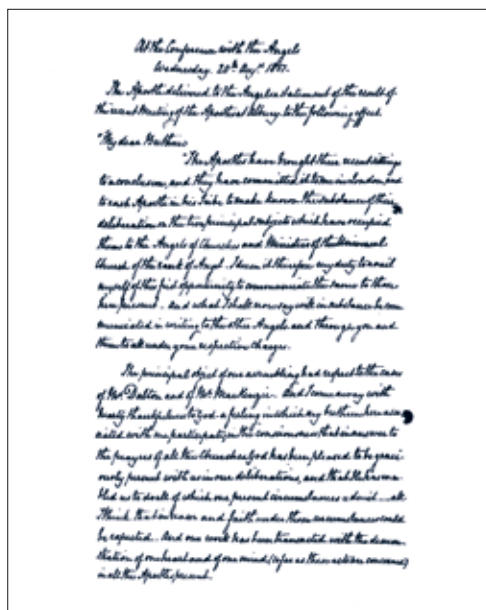 At the Conference with the Angels
Wednesday. 20th Augt. 1851.
The Apostle delivered to the Angels a statement of the result of
the recent Meeting of the Apostles at Albury to the following effect
"My dear Brethren
"The Apostles have brought their recent sittings
to a conclusion, and they have committed it to me in London, and
to each Apostle in his Tribe to make known the substance of their
deliberation on the two principal subjects which have occupied
them to the Angels of Churches and Ministers of the Universal
Church of the rank of Angel. I deem it therefore my duty to avail
myself of this first opportunity to communicate the same to those
here present. And what I shall now say will in substance be com
municated in writing to the other Angels and through you and
them to all under your respective charges.
The principal object of our assembling had respect to the cases
of Mr. Dalton and of Mr. MacKenzie. And I come away with
hearty thankfulness to God a feeling in which my brethren here asso
ciated with me participate, in the consciousness, that in answer to
the prayers of all the Churches God has been pleased to be graci
ously present with us in our deliberations, and that He has ena
bled us to do all of which our present circumstances admit all
I think that in reason and faith under those circumstances could
be expected. And our work has been transacted with the demon
stration of one heart and of one mind (as far as these acts are concerned)
in all the Apostles present.